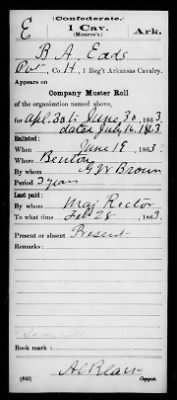 (Confederate.)
E 1 Cav. Ark.
(Monroe's)
B A Eads
Pvt, Co. H, 1 Reg't Arkansas Cavalry.
Appears on
Company Muster Roll
of the organization named above,
for Apl. 30 to June 30, 1863.
dated July 16, 1863
Enlisted:
When June 18, 1863.
Where Benton
By whom G W Brown
Period 3 years
Last paid:
By whom Maj Rector
To what time Feb 28, 1863.
Present or absent Present
Remarks:
Book mark:
(642) Copyist.